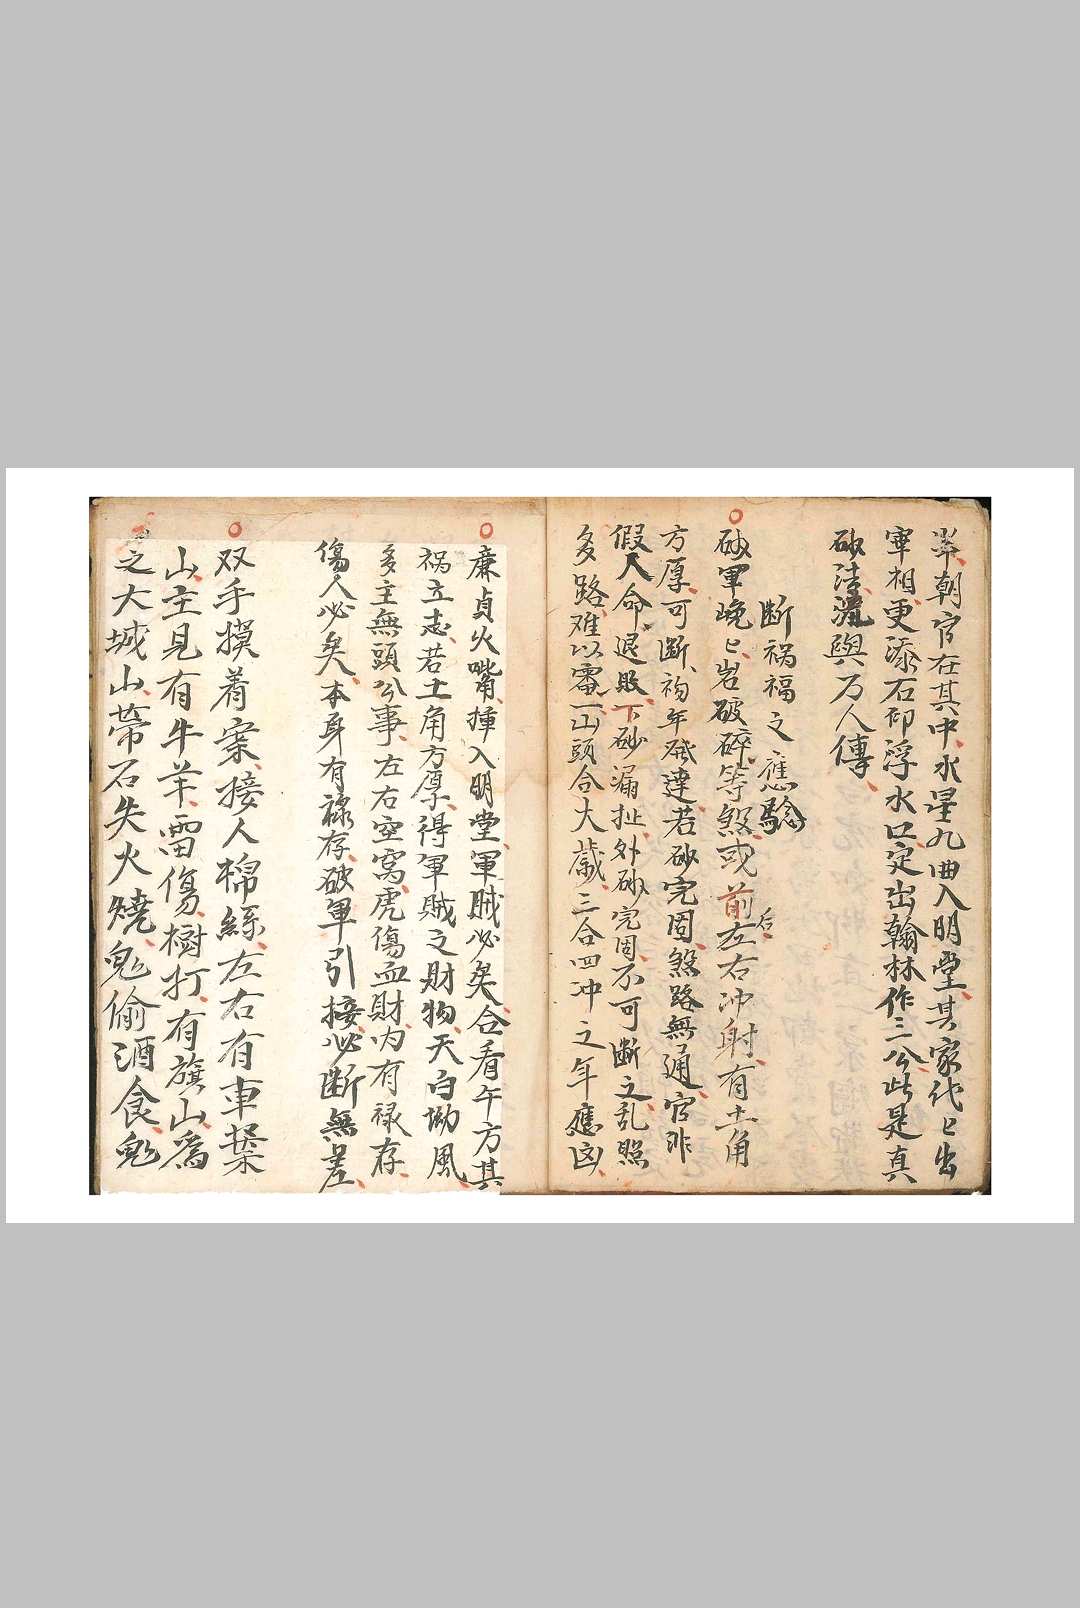 朝官在其中水星九曲入明堂其家代㠯出
宰相更添石印浮水口定出翰林作三公此是真
砂法 與万人傳
断祸福之應驗
砂軍 㠯岩破碎等煞或前后左右冲射有土角
方厚可断初年發達若砂完固煞路無通官非
假人命退敗下砂漏 外砂完固不可断之乱照
多路难以審一山頭合大歲三合四冲之年應凶
廉貞火嘴揷入明堂軍賊必矣合看午方其
祸立志若土角方厚得軍賊之財物天白坳風
多主無頭公事左右空窩虎傷血財内有禄存
傷人必矣本身有禄存破軍引接必断無差
双手摸着案接人棉絲左右有車槳
山主見有牛羊雷傷樹打有旗山為
之大城山帶石失火燒鬼偷酒食鬼